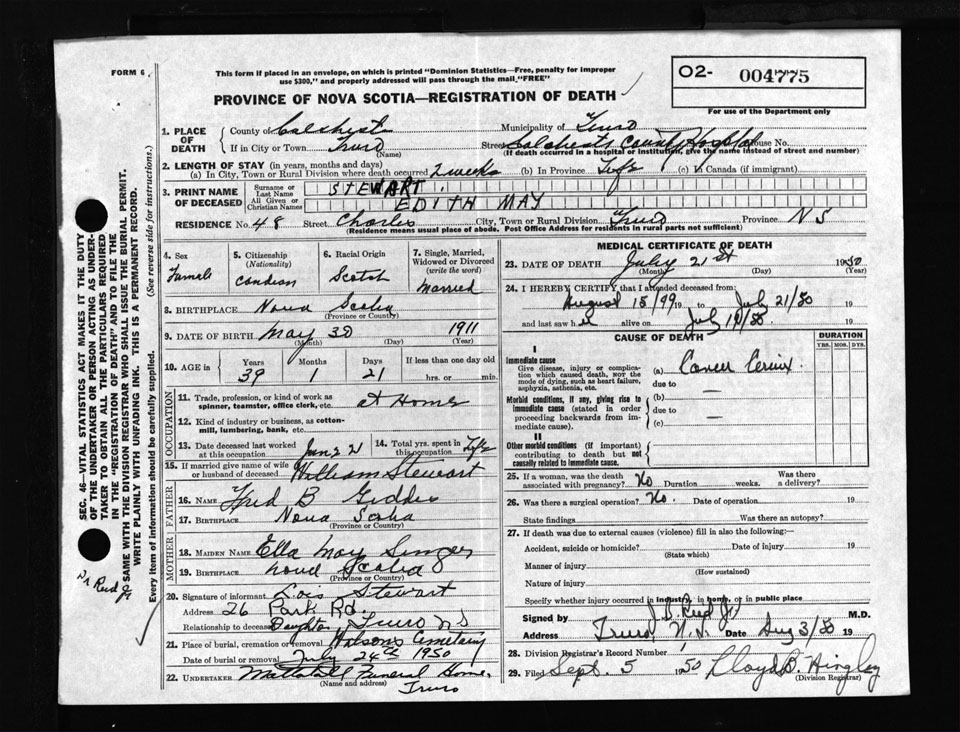 FORM 6
This form if placed in an envelope, on which is printed "Dominion Statistics—Free, penalty for improper
use $300," and properly addressed will pass through the mail "FREE"
O2- 004775
For use of the Department only
PROVINCE OF NOVA SCOTIA—REGISTRATION OF DEATH
1. PLACE OF DEATH
County of Colchester Municipality of Truro
If in City or Town Truro (Name) Street Colchester County Hospital House No.
(If death occurred in a hospital or institution, give the name instead of street and number)
2. LENGTH OF STAY (in years, months and days)
(a) In City, Town or Rural Division where death occurred 2 weeks (b) In Province Life (c) in Canada (if immigrant)
3. PRINT NAME OF DECEASED
Surname or Last Name STEWART.
All Given or Christian Names EDITH MAY
RESIDENCE No. 48 Street Charles City, Town or Rural Division Truro Province N S
(Residence means usual place of abode. Post Office Address for residents in rural parts not sufficient)
4. Sex Female
5. Citizenship (Nationality) Candian
6. Racial Origin Scotch
7. Single, Married, Widowed or Divorced (write the word) Married
8. BIRTHPLACE Nova Scotia
(Province or Country)
9. DATE OF BIRTH May 30 1911
(Month) (Day) (Year)
10. AGE in Years 39 Months 1 Days 21 If less than one day old hrs. or min.
OCCUPATION
11. Trade, profession, or kind of work as spinner, teamster, office clerk, etc. at Home
12. Kind of industry or business, as cotton-mill, lumbering, bank, etc.
13. Date deceased last worked at this occupation
14. Total yrs. spent in this occupation Life
15. If married give name of wife or husband of deceased William Stewart
FATHER
16. NAME Fred B
17. BIRTHPLACE Nova Scotia
(Province or Country)
MOTHER
18. MAIDEN NAME Ella May
19. BIRTHPLACE Nova Scotia
(Province or Country)
20. Signature of informant Lois Stewart
Address 26 Park Rd.
Relationship to deceased Daughter Truro N S
21. Place of burial, cremation or removal Watsons Cemetery
Date of burial or removal July 24th 1950
22. UNDERTAKER Mattatall Funeral Home
(Name and address) Truro
MEDICAL CERTIFICATE OF DEATH
23. DATE OF DEATH July 21st 1950
(Month) (Day) (Year)
24. I HEREBY CERTIFY that I attended deceased from:
August 15/99 19 to July 21/50 19
and last saw h er alive on July 50 19
CAUSE OF DEATH DURATION
YRS. MOS. DYS.
I
Immediate cause
Give disease, injury or complication which caused death, NOT the mode of dying, such as heart failure, asphyxia, asthenia, etc.
(a) Cancer Cervix.
due to —
Morbid conditions, if any, giving rise to immediate cause (stated in order proceeding backwards from immediate cause).
(b)
due to —
(c)
II
Other morbid conditions (if important) contributing to death but not causally related to immediate cause.
25. If a woman, was the death associated with pregnancy? No Duration weeks. Was there a delivery?
26. Was there a surgical operation? No. Date of operation 19
State findings Was there an autopsy?
27. If death was due to external causes (violence) fill in also the following:—
Accident, suicide or homicide? Date of injury 19
(State which)
Manner of injury
(How sustained)
Nature of injury
Specify whether injury occurred in industry, in home, or in public place
Signed by J. B. Reid Jr M.D.
Address Truro, N.S. Date Aug 3/50 19
28. Division Registrar's Record Number
29. Filed Sept. 5 1950 Lloyd B. Hingley
(Division Registrar)
SEC. 46—VITAL STATISTICS ACT MAKES IT THE DUTY
OF THE UNDERTAKER OR PERSON ACTING AS UNDER-
TAKER TO OBTAIN ALL THE PARTICULARS REQUIRED
IN THE "REGISTRATION OF DEATH" AND TO FILE THE
SAME WITH THE DIVISION REGISTRAR WHO SHALL ISSUE THE BURIAL PERMIT.
WRITE PLAINLY WITH UNFADING INK. THIS IS A PERMANENT RECORD.
Every item of information should be carefully supplied. (See reverse side for instructions.)
Dr Reid Jr